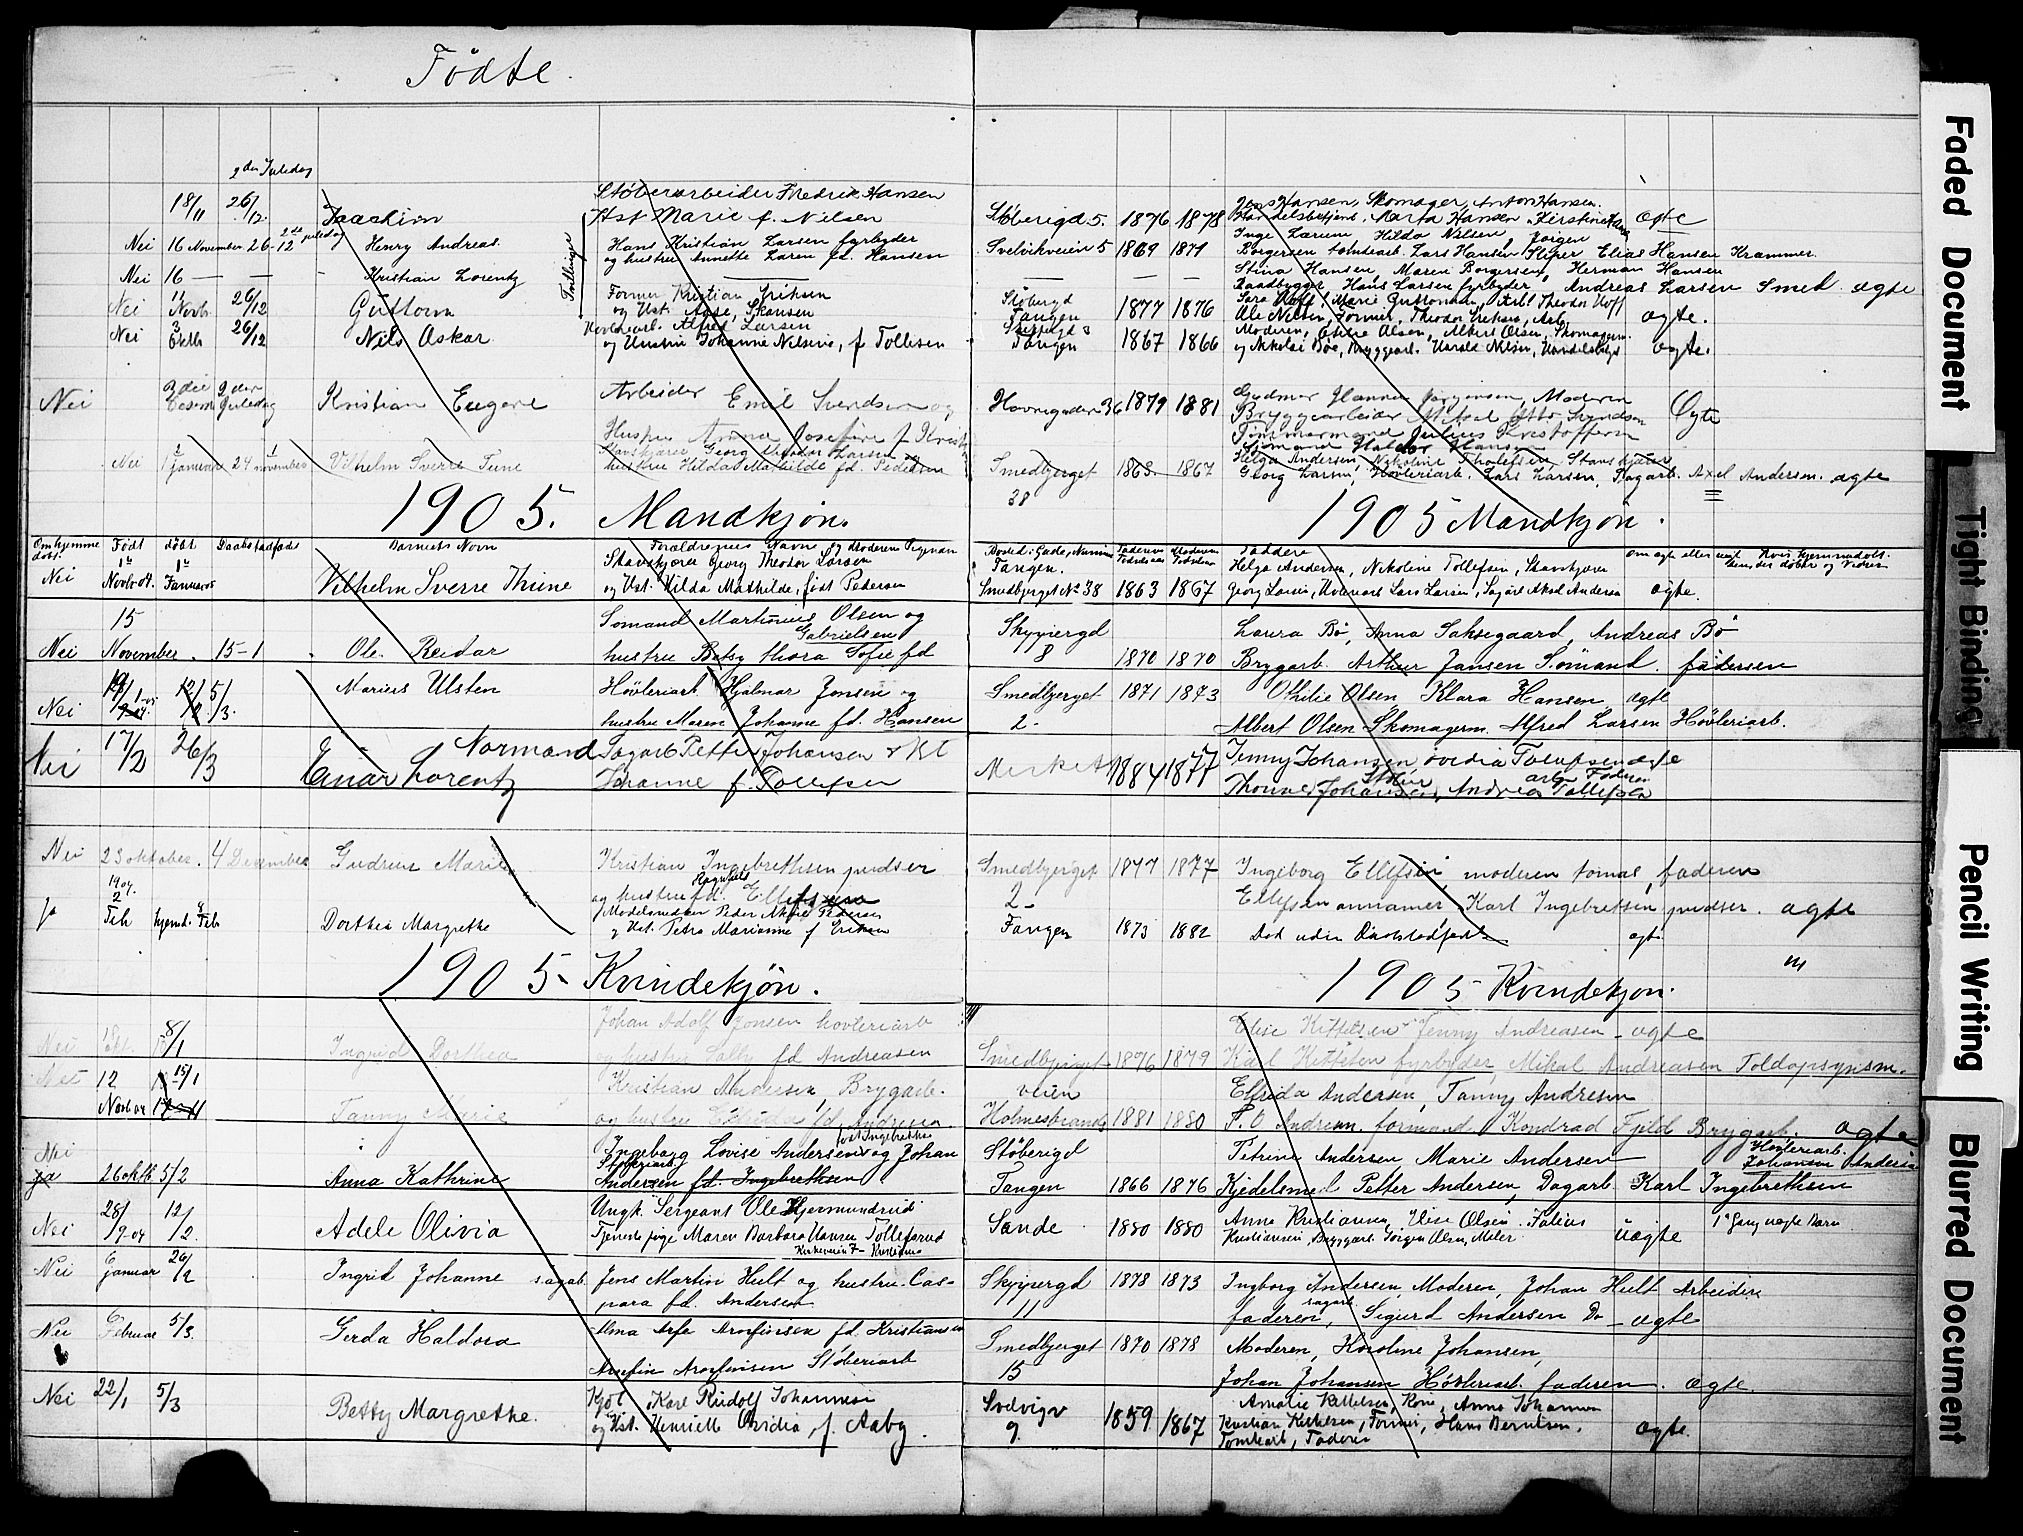 Fødte.
2den Juledag
18/11 26/12. Joachim Støberiarbeider Fredrik Hansen
Hst Marie f. Nilsen Støberigd 5. 1876 1878 Jens Hansen, Skomager, Anton Hansen.
Handelsbetjent, Marta Hansen, Kirstine ægte
Nei 16 November 26-12 2de juledag Henry Andreas. Tvillinger Hans Kristian Larsen fyrbyder
og hustru Annette Laren fd. Hansen Svelvikveien 5 1869 1871 Inge Larsen Hilda Nilsen, Jörgen
Borgersen tomtearb. Lars Hansen Sliper Elias Hansen Krammer.
Nei 16 — — - Kristian Lorentz — — — Stina Hansen, Maren Borgersen, Herman Hansen
Raadbygger Hans Larsen fyrbyder, Andreas Larsen Smed ægte
Nei 11 Novb. 26/12 Guttorm Former Kristian Eriksen
og Hst. Aase, Skansen Støbergd Tangen 1877 1876 Ole Nilsen, Former, Theodor Eriksen, Arb. ægte.
Nei 3 Oktb 26/12 Nils Oskar. Høvleriarb. Alfred Larsen
og Hustru Johanne Nilsine, f Tollefsen Tangen 1867 1866 Moderen, Olsen, Albert Olsen, Skomagerm.
og Nikolai Bøe, Bryggearb. Harald Nilsen, Handelsbetj ægte.
Nei 3die Desemb 2den Juledag Kristian Eugene Arbeider Emil Svendsen og Havnegaden 36 1879 1881 Gudmor Hanna Jørgensen, Moderen
Bryggearbeider Mikal Otto Svendsen Ægte
Hustru Anna Josefine f Krist Tømmermand Julius Kristoffersen
Nei 1 Januar 24 november Vilhelm Sverre Tune Stavskjærer Georg Theodor Larsen
hustru Hilda Mathilde fd. Pedersen Smedbjerget 38 1863 1867 Helga Andersen Nikoline Tholefsen, Stavskjærer
Georg Larsen, Høvleriarb. Lars Larsen, Sagarb. Axel Andersen. ægte
1905. Mandkjøn. 1905 Mandkjøn.
Om hjemme døbt. Født døbt Daabstadfæst Barnets Navn Forældrenes Navne og Moderens Pigenavn Bosted: Gade, Nummer Faderens Fødselsaar Moderens Fødselsaar Faddere om ægte eller uægt Hvis hjemmedøbt hvem der døber og Vidner
Nei 1te Novb. 04. 1te Januar 05 Vilhelm Sverre Thune Stavskjærer Georg Theodor Larsen
og Hst. Hilda Mathilde, født Pedersen Tangen. Smedbjerget No 38 1863 1867 Helga Andersen, Nikoline Tollefsen, Stavskjærer
Georg Larsen, Høvleriarb Lars Larsen, Sagarb Aksel Andersen ægte.
Nei 15 November. 15-1 Ole Reidar Sømand Martinius Olsen og
hustru Betsy thora Sofie fd Gabrielsen Skippergd 8 1870 1870 Laura Bø, Anna Saksegaard, Andreas Bø
Brygarb. Arthur Jansen Sømand. faderen
Nei 19/1 5/3. Marius Ulsten Høvleriarb. Hjalmar Jonsen og
hustru Maren Johanne fd. Hansen Smedbjerget 2- 1871 1873 Othilie Olsen, Klara Hansen ægte
Albert Olsen Skomagerm. Alfred Larsen Høvleriarb.
Nei 17/2 26/3 Einar Lorentz Normand Sagarb Petter Johansen & Hst
Johanne f. Tollefsen Merket 1884 1877 Jenny Johansen Ovedia Tollefsen ægte
Thomas Johansen, Andreas Tollefsen arb Faderen
Nei 23 oktober. 4 December Gudrun Marie Kristian Ingebrethsen pudser
og hustru fd. Ragnhild Ellefsen Smedbjerget 2- 1877 1877 Ingeborg Ellefsen, moderen tomas, faderen
Ellefsen annamer. Karl Ingebretsen, pudser. ægte
Ja 1904. 2 Feb hjemd. 8 Feb Dorthea Margrethe Modelsnedker Peder Pedersen
og Hst. Petra Marianne f Eriksen Tangen 1873 1882 Død uden Daabstadfæst ægt.
1905 - Kvindekjøn. 1905 Kvindekjøn.
Nei 18 8/1 Ingrid Dorthea Johan Adolf Jonsen hovleriarb
og hustru Sally fd Andreasen Smedbjerget 1876 1879 Elise Kittelsen - Jenny Andreasen - ægte
Karl Kittelsen fyrbyder, Mikal Andreasen Toldopsynsm.
Nei 12 Novb 04 15/1 Fanny Marie Kristian Andersen, Brygarb.
og hustru Elfrida fd Andresen. veien Holmestrands 1881 1880 Elfrida Andersen, Fanny Andresen
P. O Andresen. formand Kondrad Fjeld Brygarb. ægte
Nei Ja 26 oktb 5/2 Anna Kathrine Ingeborg Lovise Andersen født Ingebrethsen og Johan
Andersen Støberiarb fd. Ingebrethsen Støberigd Tangen 1866 1876 Petrine Andersen Marie Andersen Høvleriarb. Johansen Andersen
Kjedelsmed Petter Andersen, Dagarb. Karl Ingebrethsen
Nei 28/9-04 12/2. Adele Olivia Ungk. Sergeant Ole Hjermundrud
Tjenestepige Maren Barbara Hansen Tollefsrud Sande 1880 1880 Anna Kristiansen, Elise Olsen. Julius
Kristiansen, Bryggarb. Jørgen Olsen, Møler uægte 1te Gang uægte Barn
Nei 6 Januar 26/2 Ingrid Johanne sagab. Jens Martin Hult og hustru Cas-
para fd. Andersen Skippergd 11 1878 1873 Ingborg Andersen, Moderen, Johan Hult Arbeider
faderen, sagarb. Sigurd Andersen Do - ægte
Nei 6 Februar 5/3. Gerda Haldora Alma Arnfinsen fd. Kristiansen
Arnfin Arnfinsen Støberiarb Smedbjerget 15 1870 1878 Moderen, Karoline Johansen,
Johan Johansen Høvleriarb. faderen. ægte.
Nei 22/1 5/3 Betty Margrethe. Karl Rudolf Johannesen
og Hst. Henriette Ovidia, f. Aaby. 9. 1859 1867 Amalie Kittelsen, Kone, Anna Johannesen
Kristian Kittelsen, Former, Hans Berntsen.
Tomtearb, Faderen ægte.
Faded Document
Tight Binding
Pencil Writing
Blurred Document